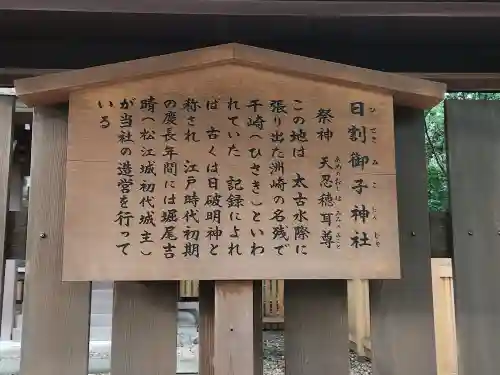 日割御子神社
ひさきみこじんじゃ
祭神 天忍穂耳尊
あめのおしほみみのみこと
この地は 太古水際に
張り出た洲崎の名残で
干崎(ひさき)といわ
れていた 記録によれ
ば 古くは日破明神と
称され 江戸時代初期
の慶長年間には堀尾吉
晴(松江城初代城主)
が当社の造営を行って
いる